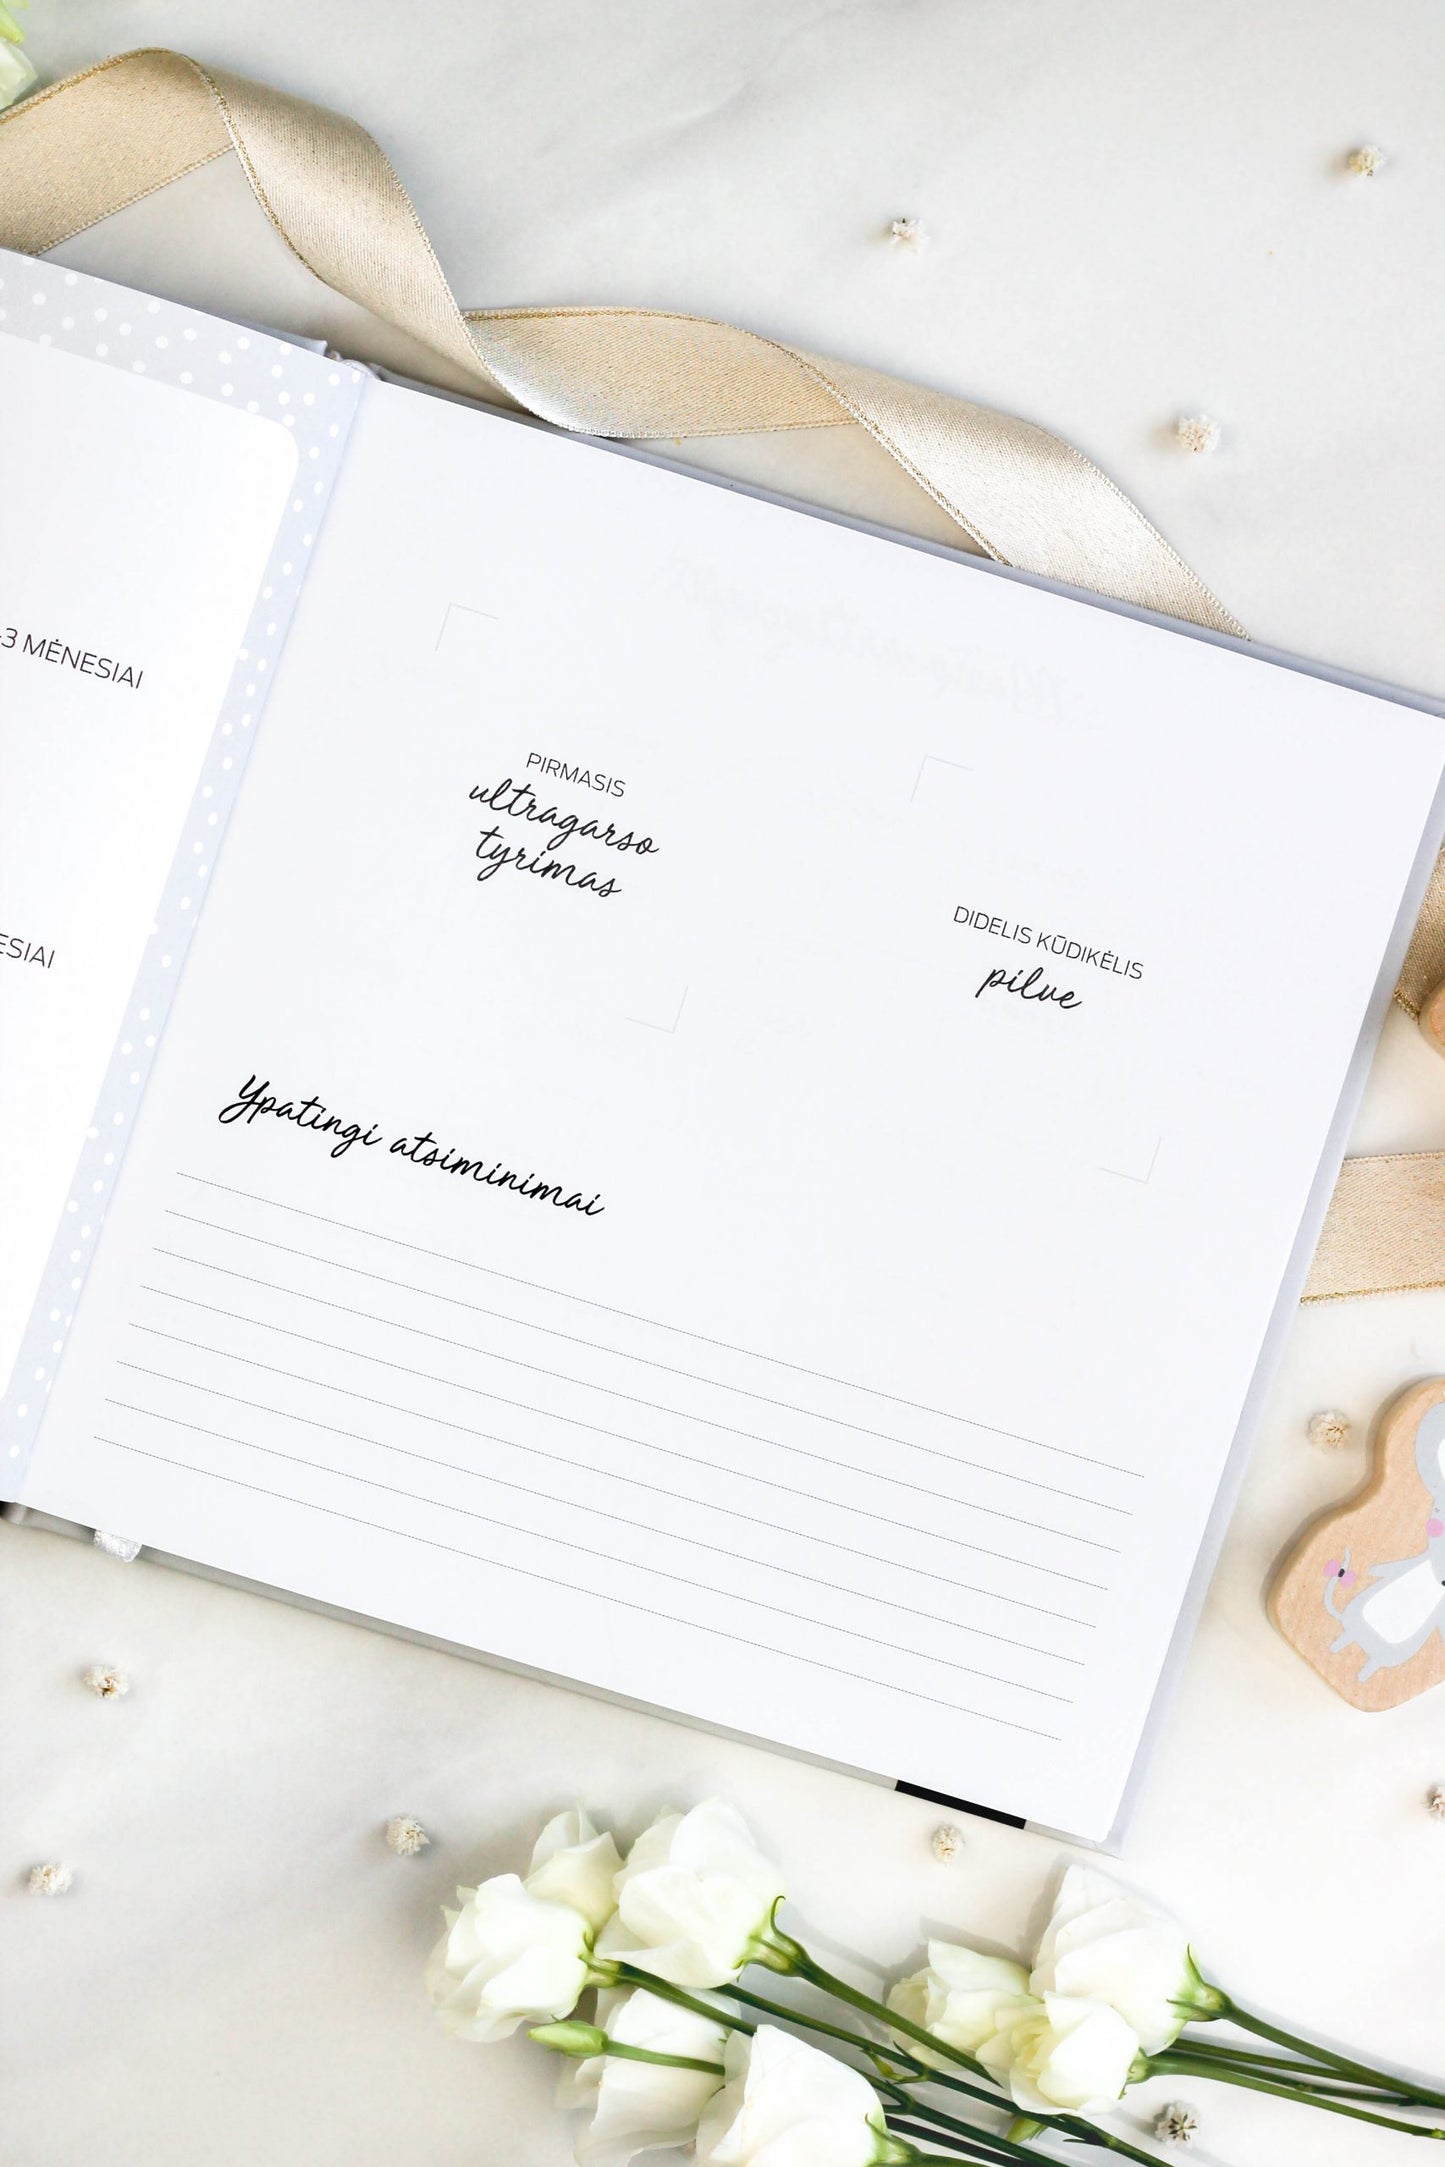 -3 MĖNESIAI
ESIAI
PIRMASIS
ultragarso
tyrimas
DIDELIS KŪDIKĖLIS
pilve
Ypatingi atsiminimai